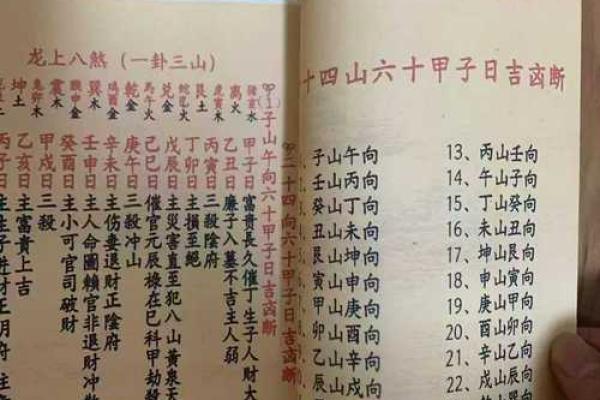 龙上八煞（一卦三山）
离火
虎寅木
艮土
蛇巳火
兑金
马午火
乾金
鸡酉金
巽木
猴申金
震木
兔卯木
坤土
(1)子山午向六十甲子日吉凶断
甲子日富貴長久催丁生子人財大
乙丑日廉子入墓不吉主人弱
丙寅日三殺陰府
丁卯日主損至絕
戊辰日主災害直至犯八山黄泉天
己巳日催官元辰祿在巳科甲劫殺
庚午日三殺冲山
辛未日主伤妻退財正陰府
壬申日主人命圖賴官非退財冲
癸酉日主小可官司破財
甲戌日三殺
乙亥日主富貴上吉
二十四向六十甲子日吉凶断
十四山六十甲子日吉凶断
、子山午向
、壬山丙向
癸山丁向
丑山未向
艮山坤向
寅山申向
甲山庚向
卯山酉向
乙山辛向
辰山戌向
13、丙山壬向
14、午山子向
15、丁山癸向
16、未山丑向
17、坤山艮向
18、申山寅向
19、庚山甲向
20、酉山卯向
21、辛山乙向
22、戌山辰向